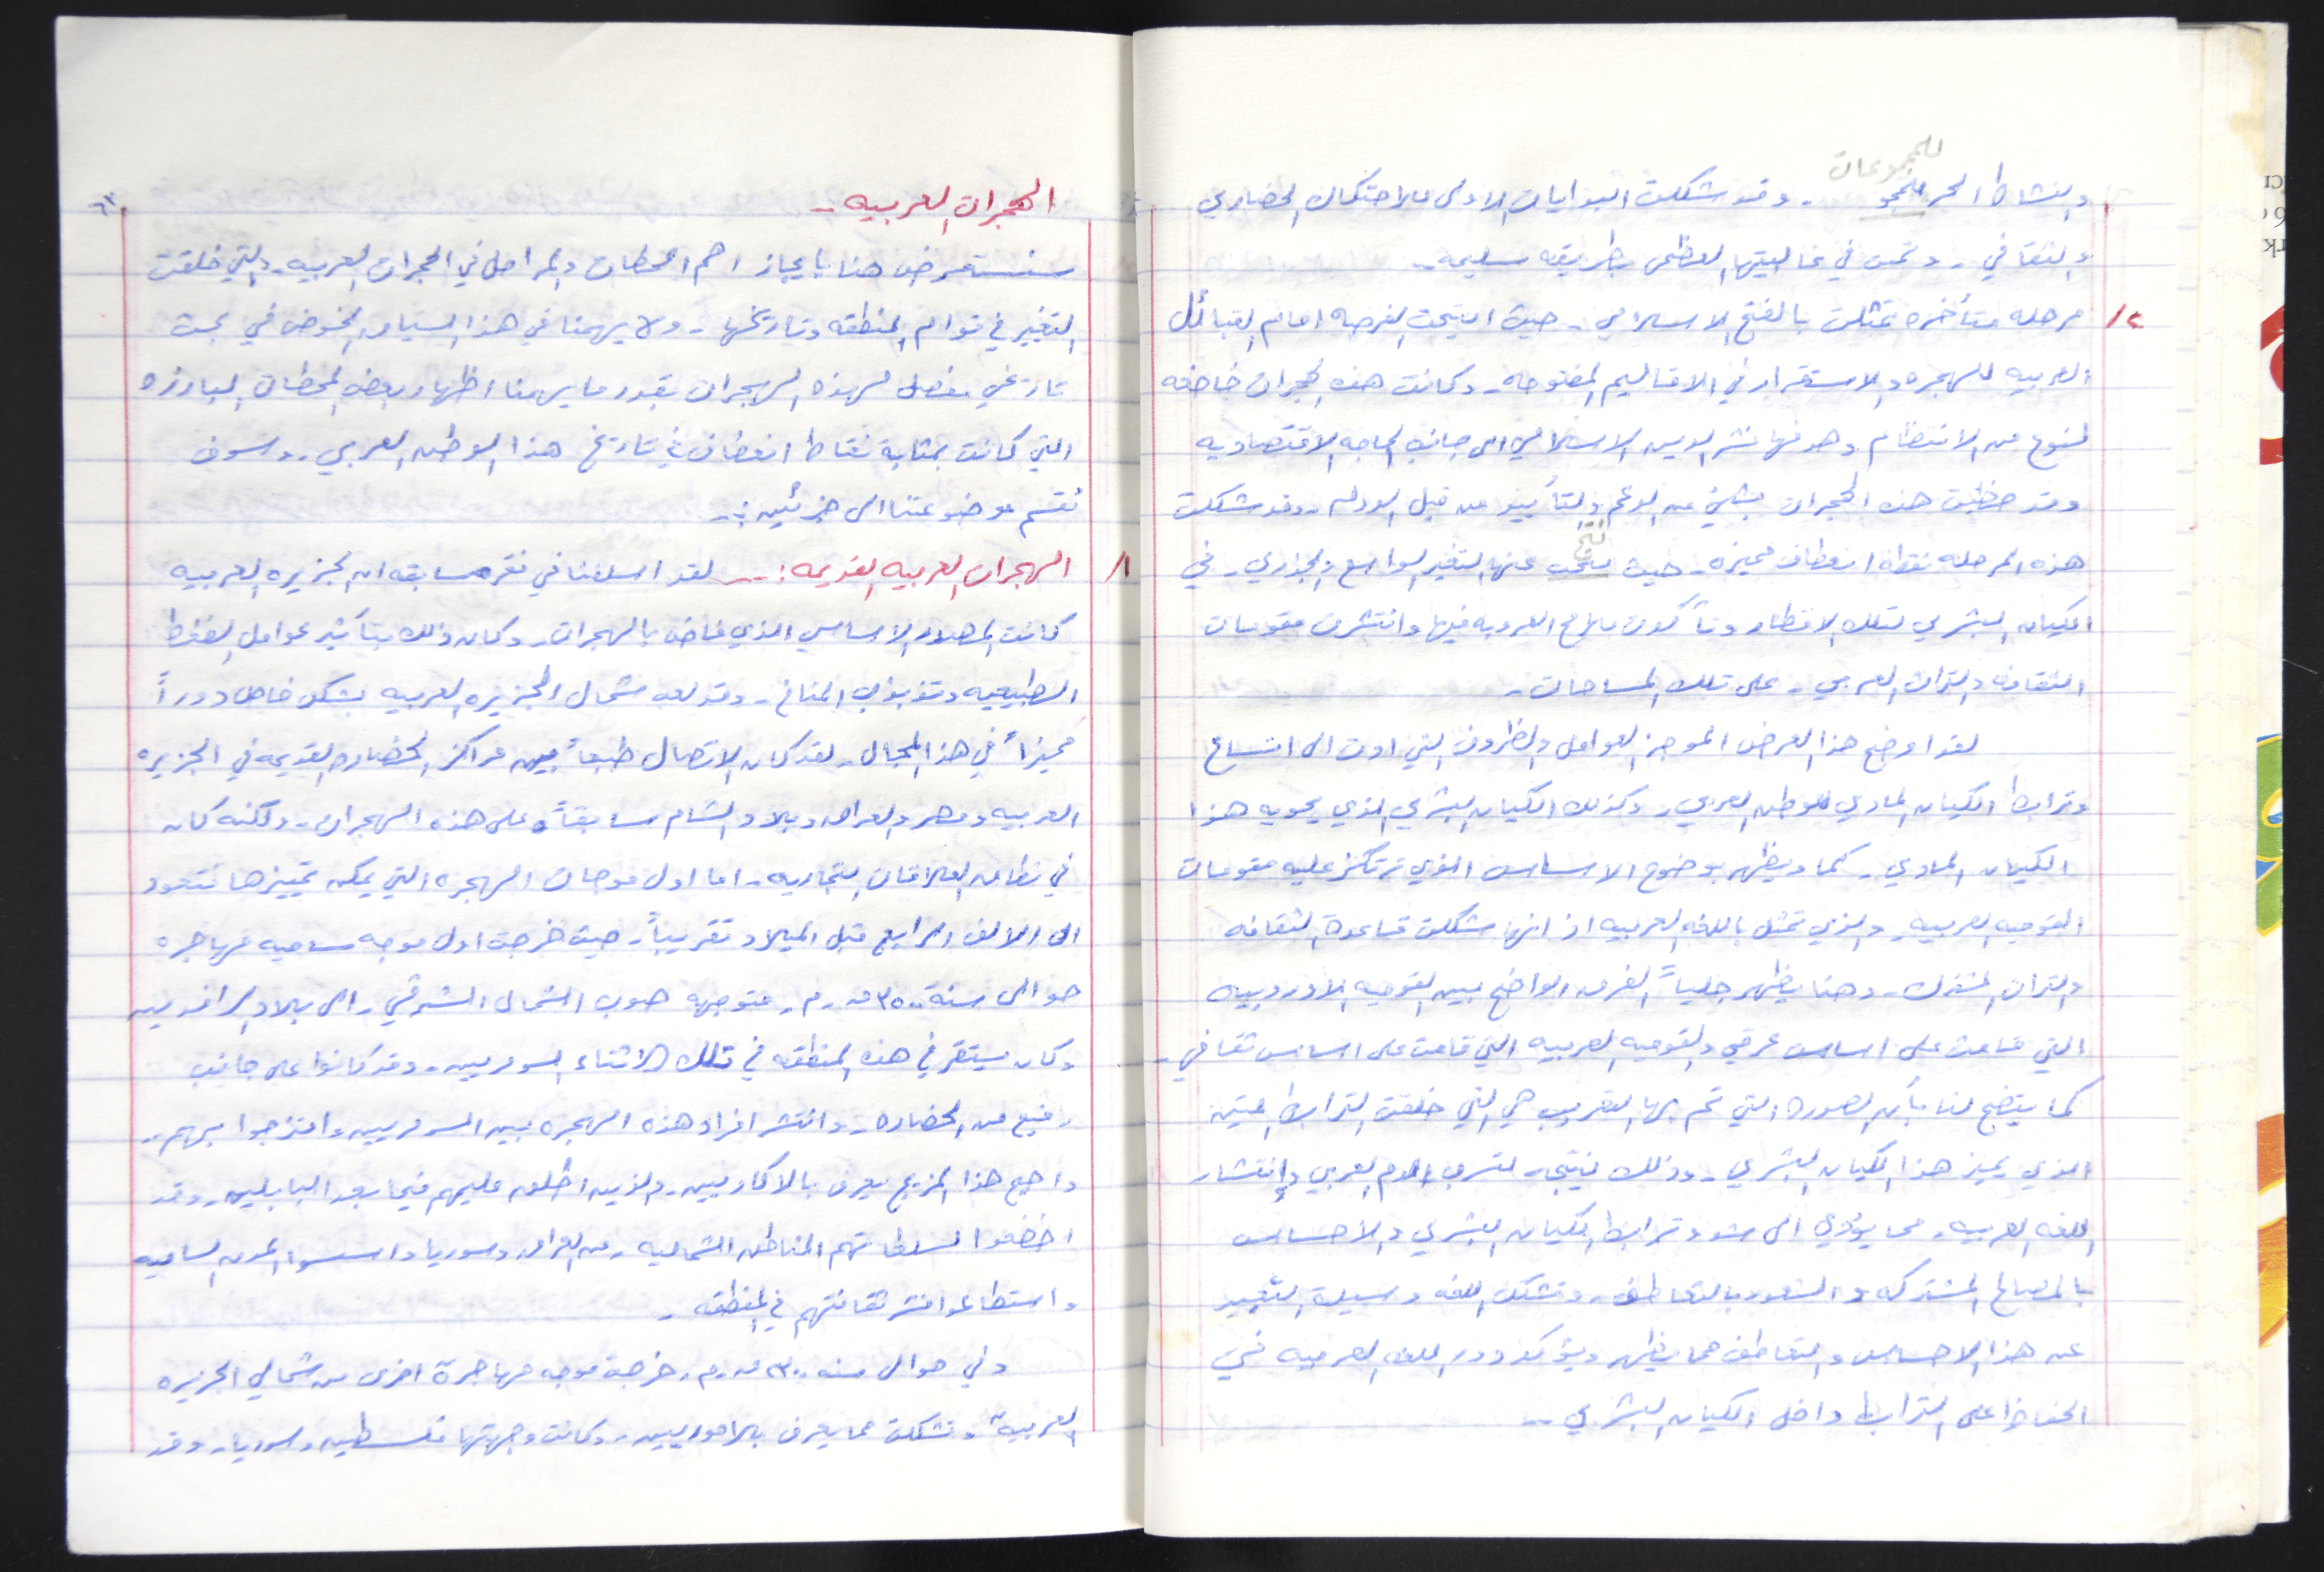 للمجموعات
والنشاط الحر للمجو - وقد شكلت البدايات الاولى للاحتكاك الحضاري
والثقافي - وتمت في غالبيتها العظمى بطريقه سليمه -
٢/ مرحله متأخره تمثلت بالفتح الاسلامي - حيث اتيحت الفرصه امام القبائل
العربيه للهجره والاستقرار في الاقاليم المفتوحه - وكانت هذه الهجرات خاضعه
لنوع من الانتظام وهدفها نشر الدين الاسلامي الى جانب الحاجه الاقتصاديه
وقد حظيت هذه الهجرات بشيئ من الدعم والتأييد من قبل الدوله - وقد شكلت
نتج
هذه المرحله نقطة انعطاف مميزه - حيث نتجت عنها التغير الواسع والجذري - في
الكيان البشري لتلك الاقطار وتأكدت ملامح العروبه فيها وانتشرت مقومات
الثقافه والتراث العربي - على تلك المساحات -
لقد اوضح هذا العرض الموجز العوامل والظروف التي ادت الى اتساع
وترابط الكيان المادي للوطن العربي - وكذلك الكيان البشري الذي يحويه هذا
الكيان المادي - كما ويظهر بوضوح الاساس الذي ترتكز عليه مقومات
القوميه العربيه - والذي تمثل باللغه العربيه اذ انها شكلت قاعدة الثقافه
والتراث المشترك - وهنا يظهر جلياً الفرق الواضح بين القوميه الاوروبيه
التي قامت على اساس عرقي والقوميه العربيه التي قامت على اساس ثقافي -
كما يتضح لنا بأن الصوره التي تم بها التعريب هي التي خلقت الترابط المتين
الذي يميز هذا الكيان البشري - وذلك نتيجه لتسرب الدم العربي وانتشار
اللغه العربيه - مما يؤدي الى شد وترابط الكيان البشري والاحساس
بالمصالح المشتركه والشعور بالتعاطف - وتشكل اللغه وسيلة التعبير
عن هذا الاحساس والتعاطف مما يظهر ويؤكد دور اللغه العربيه في
الحفاظ على الترابط داخل الكيان البشري -
الهجرات العربيه -
سنستعرض هنا بايجاز اهم المحطات والمراحل في الهجرات العربيه - والتي خلقت
التغيير في قوام المنطقه وتاريخها - ولا يهمنا في هذا السياق الخوض في بحث
تاريخي مفصل لهذه الهجرات بقدر ما يهمنا اظهار بعض المحطات البارزه
التي كانت بمثابة نقاط انعطاف في تاريخ هذا الوطن العربي - وسوف
نقسم موضوعنا الى جزئين :-
١/ الهجرات العربيه القديمه :- لقد اسلفنا في فقره سابقه ان الجزيره العربيه
كانت المصدر الاساسي الذي فاض بالهجرات - وكان ذلك بتأثير عوامل الضغط
الطبيعيه وتذبذب المناخ - وقد لعب شمال الجزيره العربيه بشكل خاص دوراً
مميزاً في هذا المجال - لقد كان الاتصال طبعاً بين مراكز الحضاره القديمه في الجزيره
العربيه ومصر والعراق وبلاد الشام سابقاً على هذه الهجرات - ولكنه كان
في نطاق العلاقات التجاريه - اما اول موجات الهجره التي يمكن تمييزها فتعود
الى الالف الرابع قبل الميلاد تقريباً - حيث خرجت اول موجه ساميه مهاجره
حوالى سنة ٣٥٠٠ ق.م - متوجهه صوب الشمال الشرقي - الى بلاد الرافدين
وكان يستقر في هذه المنطقه في تلك الاثناء السومريين - وقد كانوا على جانب
رفيع من الحضاره - وانتشر افراد هذه الهجره بين السومريين وامتزجوا بهم -
واصبح هذا المزيج يعرف بالاكاديين - والذين اطلق عليهم فيما بعد البابليين - وقد
اخضعوا لسلطانهم المناطق الشماليه - من العراق وسوريا واسسوا المدن الساميه
واستطاعوا نشر ثقافتهم في المنطقه -
وفي حوالى سنه ٣٠٠٠ ق.م - خرجت موجه مهاجرة اخرى من شمالي الجزيره
العربيه وتشكلت مما يعرف بالاموريين - وكانت وجهتها فلسطين وسوريا - وقد